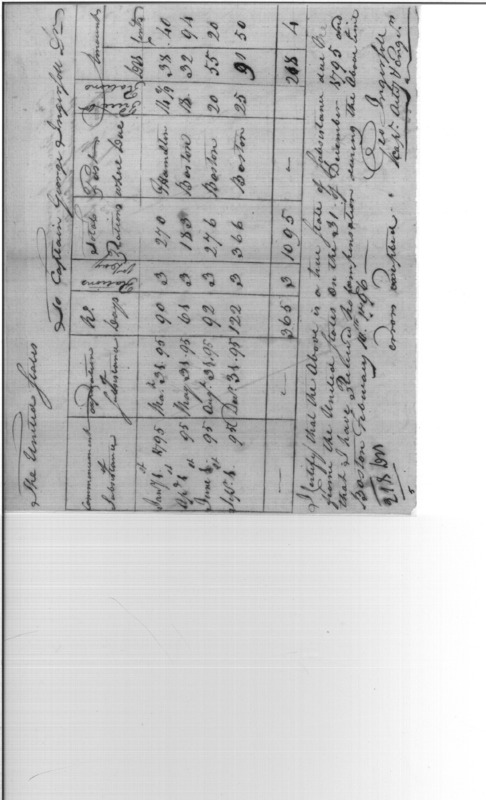 The United States
To Captain George Ingersoll Dr
Commencement of Subsistence | expiration of Subsistence | No. Days | Rations pr Day | Total Rations | Post where Due | Price of Rations | Amount Dols Cents
Jany 1st 1795 | Mar. 31. 95 | 90 | 3 | 270 | Springfield | 14 | 38 40
Apl 1st 95 | May 31. 95 | 61 | 3 | 183 | Boston | 18 | 32 94
June 1st 95 | Augt 31. 95 | 92 | 3 | 276 | Boston | 20 | 55 20
Sepr 1st 95 | Decr 31. 95 | 122 | 3 | 366 | Boston | 25 | 91 50
— | — | 365 | 3 | 1095 | — | | 218 4
I certify that the Above is a true state of subsistance due Me
from the United States on the 31 of December 1795 and
that I have Received no compensation during the above time
Boston February 1796
Geo Ingersoll
Capt. Arty
errors excepted